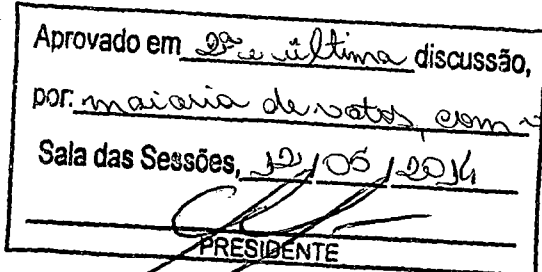 Aprovado em 2ª e última discussão,
por: maioria de votos, com
Sala das Sessões, 12/05/2014
PRESIDENTE